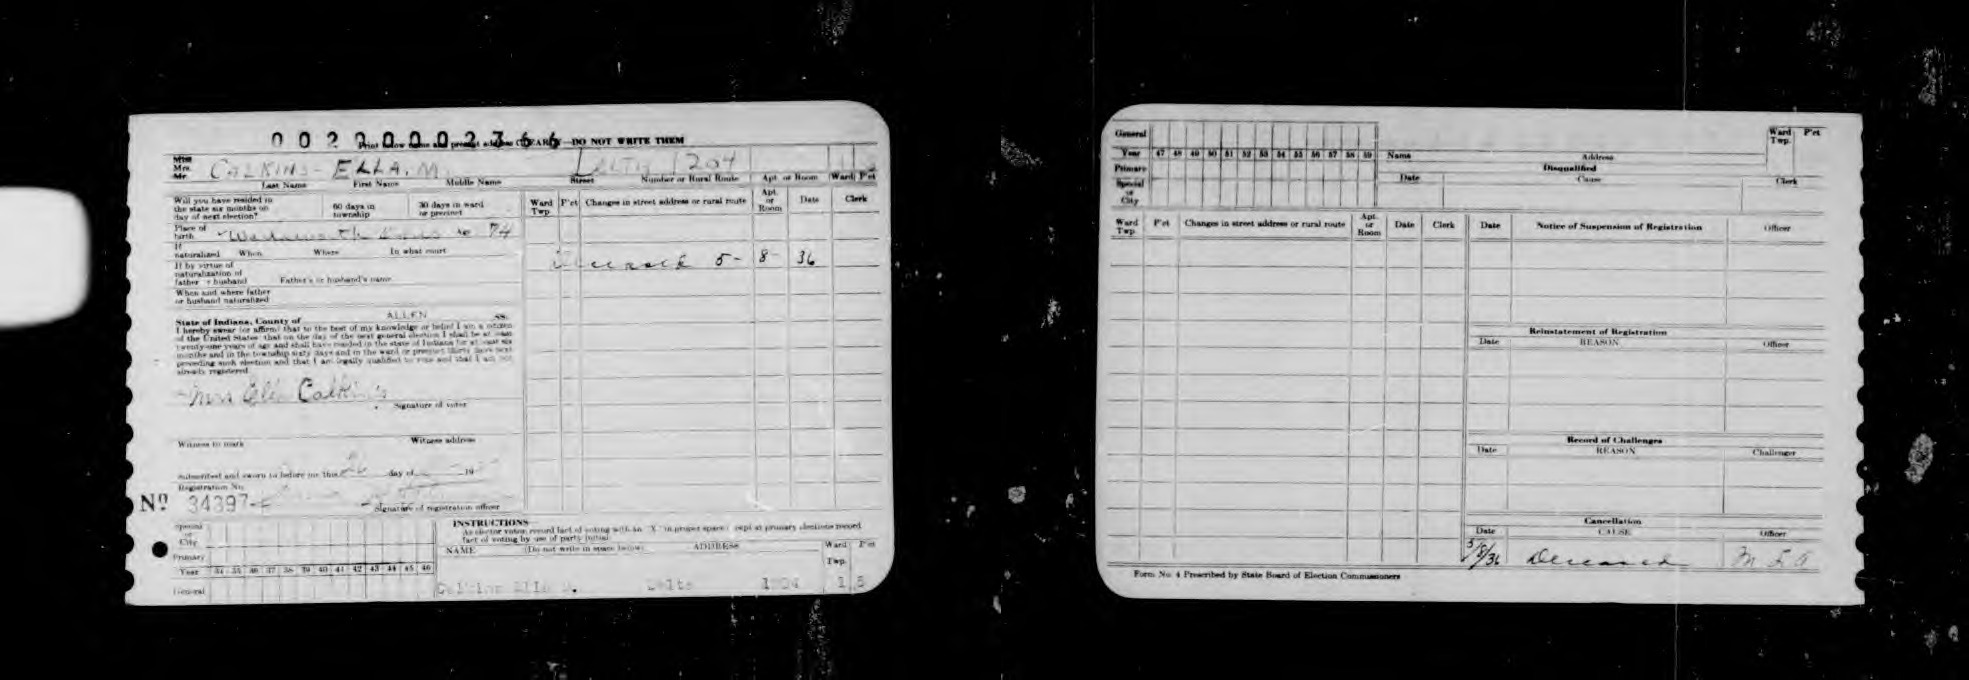 0 0 2 0 0 0 0 2 3 6 6
DO NOT WRITE THEM
Miss
Mrs.
Mr.
CALKINS- ELLA. M. DELTA 1204
Last Name First Name Middle Name Street Number or Rural Route Apt. or Room Ward P'ct
Will you have resided in
the state six months on
day of next election?
60 days in
township
30 days in ward
or precinct
Place of
birth
74
If
naturalized When Where In what court
If by virtue of
naturalization of
father or husband Father's or husband's name
When and where father
or husband naturalized
Ward
Twp.
P'ct
Changes in street address or rural route
Apt.
or
Room
Date
Clerk
5- 8- 36
State of Indiana, County of ALLEN ss.
I hereby swear (or affirm) that to the best of my knowledge or belief I am a citizen
of the United States; that on the day of the next general election I shall be at least
twenty-one years of age and shall have resided in the state of Indiana for at least six
months and in the township sixty days and in the ward or precinct thirty days next
preceding such election and that I am legally qualified to vote and that I am not
already registered
Mrs Ella Calkins
Signature of voter
Witness to mark Witness address
Subscribed and sworn to before me this 26 day of 19
Registration No.
Nº 34397
Signature of registration officer
Special
or
City
Primary
Year 34 35 36 37 38 39 40 41 42 43 44 45 46
General
INSTRUCTIONS
As elector votes, record fact of voting with an "X" in proper space except at primary elections record
fact of voting by use of party initial
NAME (Do not write in space below) ADDRESS
Ward
Twp.
P'ct
Calkins Ella M. Delta 1204 1 5
General
Year 47 48 49 50 51 52 53 54 55 56 57 58 59
Primary
Special
or
City
Name Address
Ward
Twp.
P'ct
Disqualified
Date Cause Clerk
Ward
Twp.
P'ct
Changes in street address or rural route
Apt.
or
Room
Date
Clerk
Date Notice of Suspension of Registration Officer
Reinstatement of Registration
Date REASON Officer
Record of Challenges
Date REASON Challenger
Cancellation
Date CAUSE Officer
5/8/36 Deceased M F A
Form No. 4 Prescribed by State Board of Election Commissioners